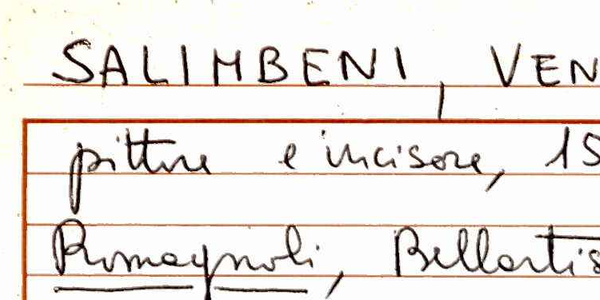 SALIMBENI, VEN
pittore e incisore, 15
Romagnoli, Bellartis